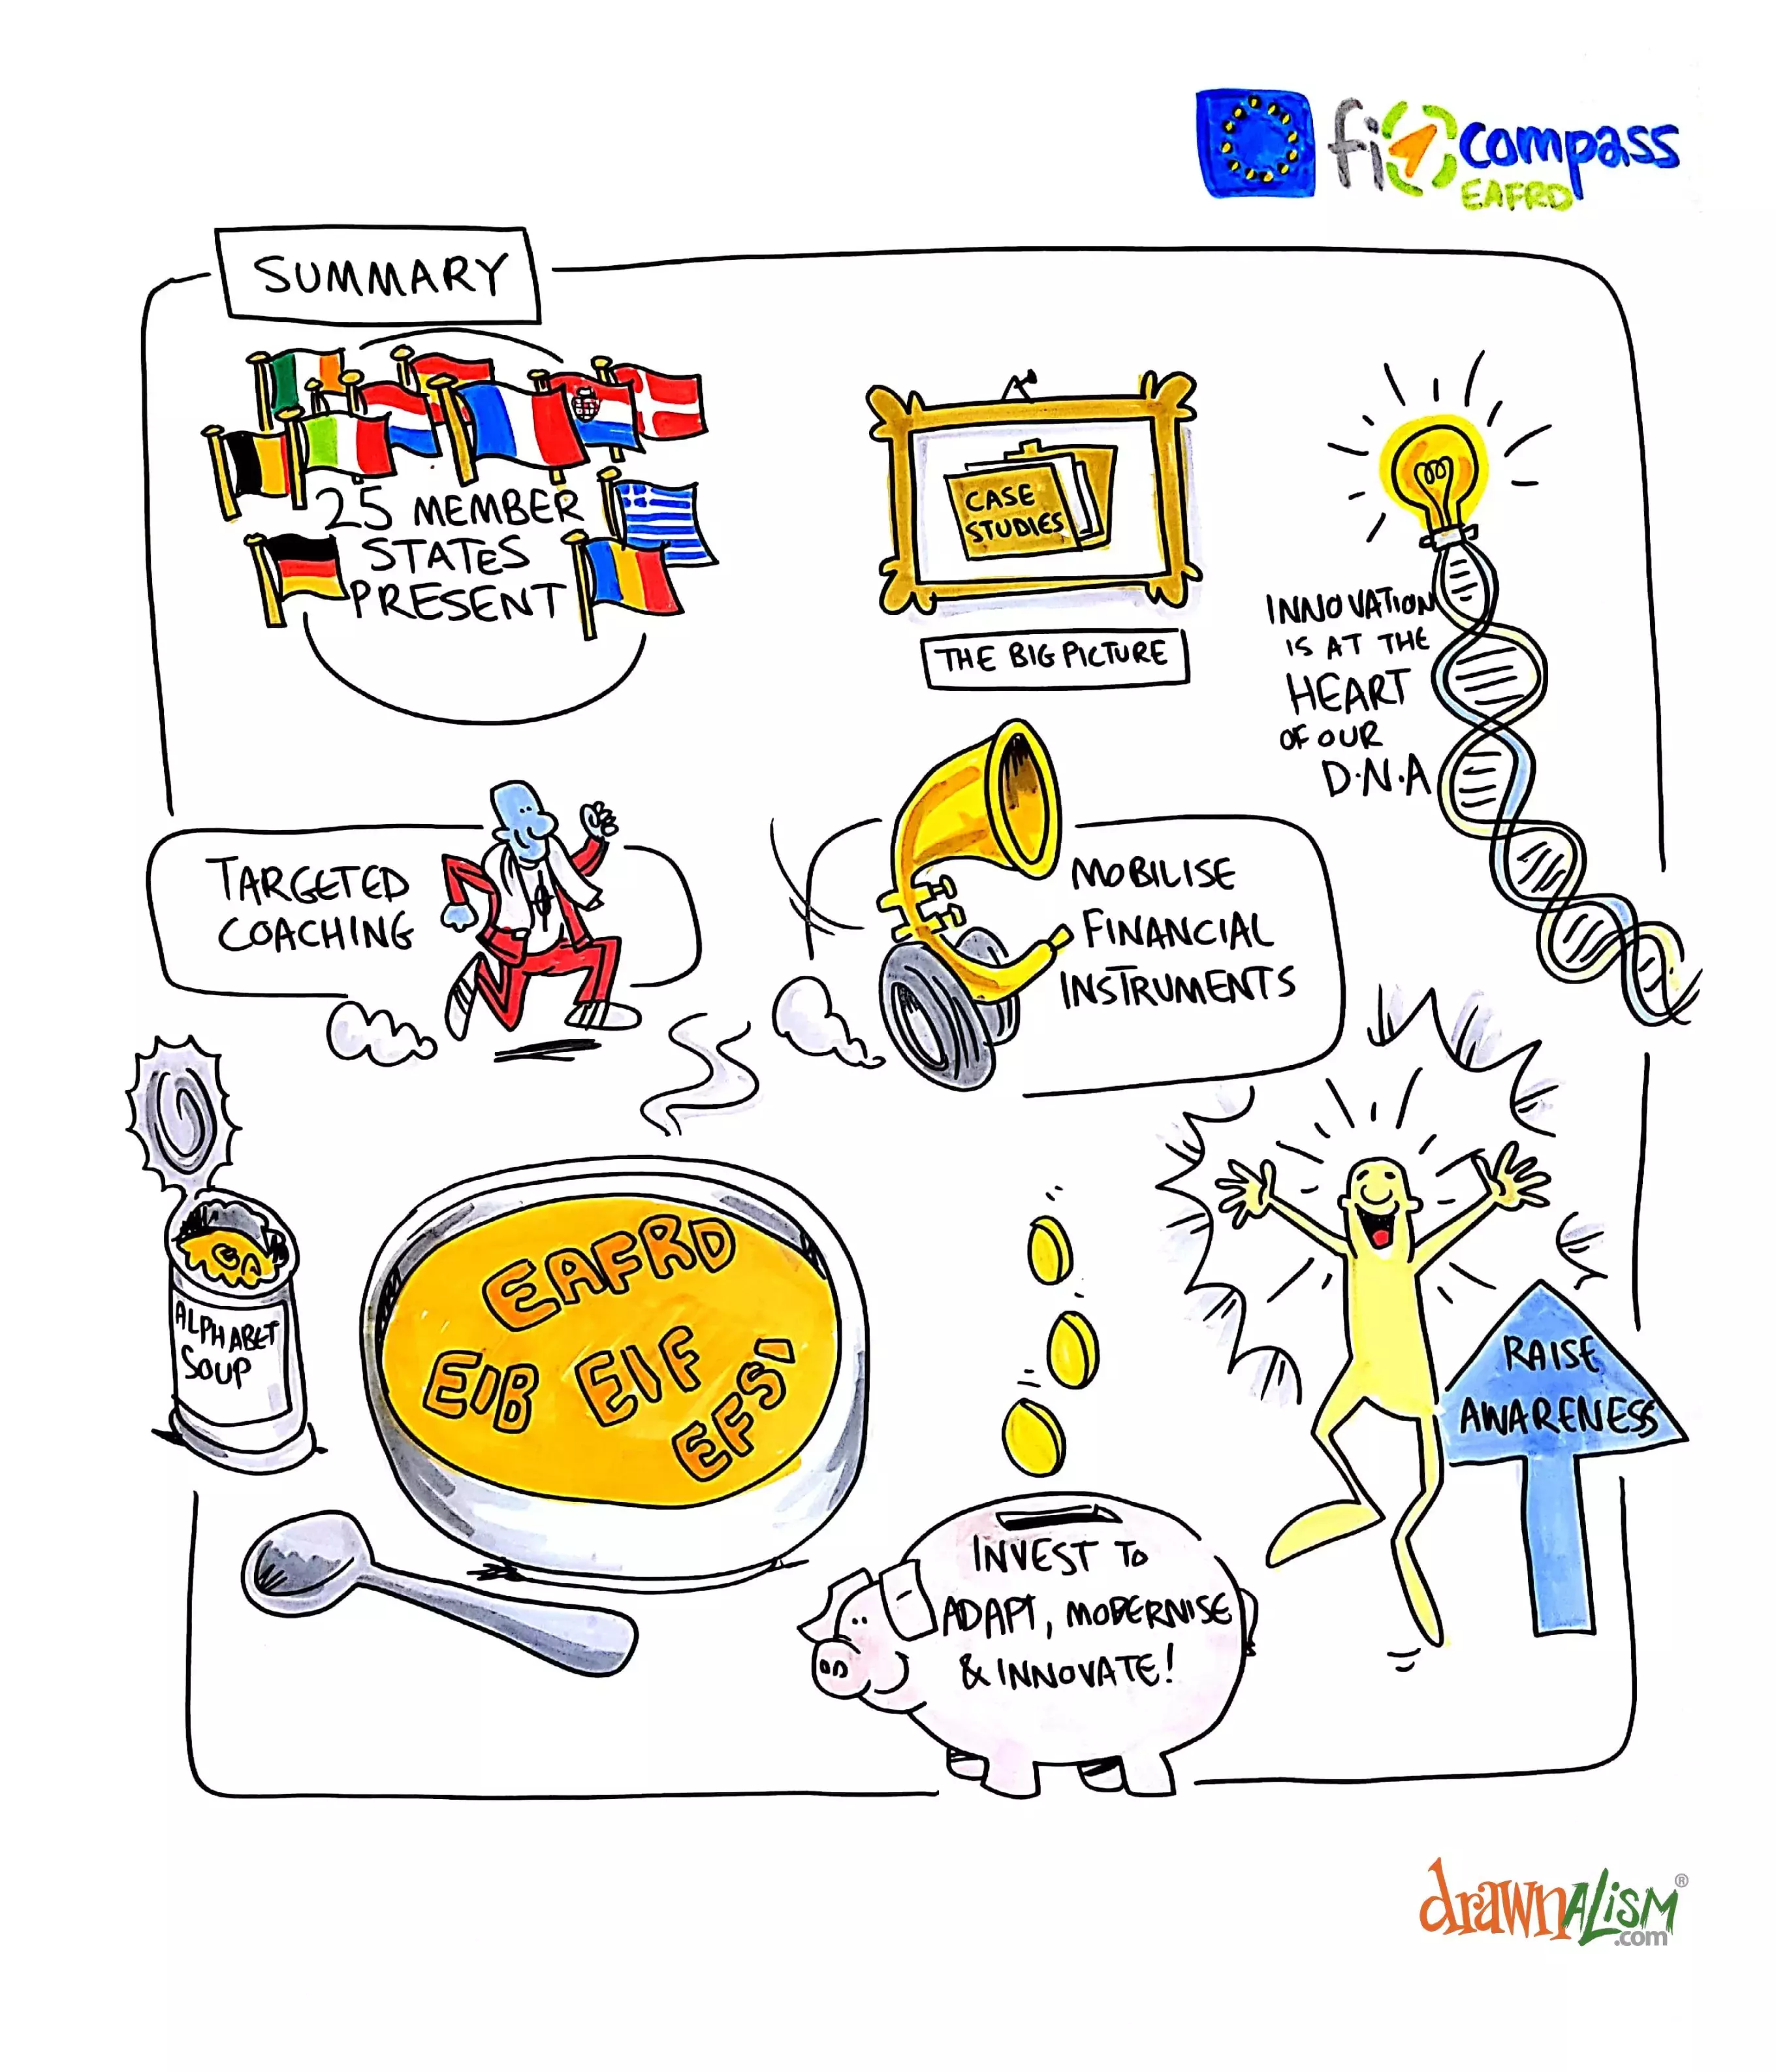 fi compass
EAFRD
SUMMARY
25 MEMBER
STATES
PRESENT
CASE
STUDIES
THE BIG PICTURE
INNOVATION
IS AT THE
HEART
OF OUR
D.N.A
TARGETED
COACHING
MOBILISE
FINANCIAL
INSTRUMENTS
ALPHABET
SOUP
EAFRD
EIB EIF
EFSI
RAISE
AWARENESS
INVEST TO
ADAPT, MODERNISE
& INNOVATE!
drawnalism®
.com